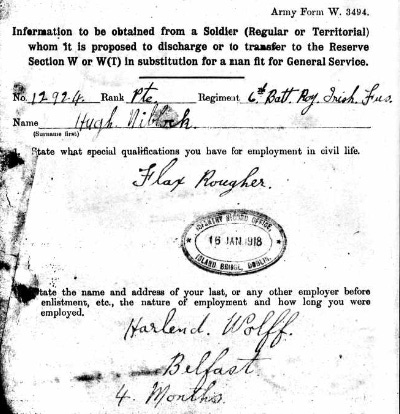 Army Form W. 3494.
Information to be obtained from a Soldier (Regular or Territorial)
whom it is proposed to discharge or to transfer to the Reserve
Section W or W(T) in substitution for a man fit for General Service.
No. 12924. Rank Pte. Regiment 6th Batt. Roy. Irish Fus.
Name Hugh Niblock.
(Surname first)
State what special qualifications you have for employment in civil life.
Flax Rougher.
INFANTRY RECORD OFFICE,
16 JAN 1918
ISLAND BRIDGE, DUBLIN.
State the name and address of your last, or any other employer before
enlistment, etc., the nature of employment and how long you were
employed.
Harlend. Wolff.
Belfast
4. Months.